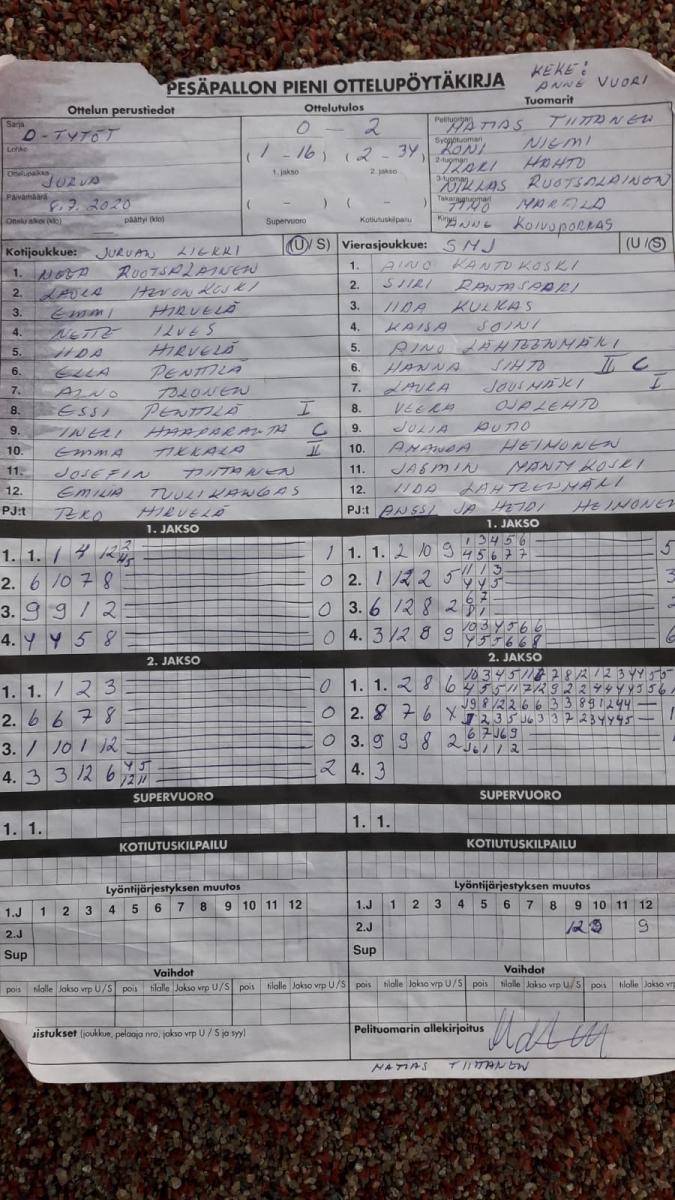 PESÄPALLON PIENI OTTELUPÖYTÄKIRJA
KEKE:
ANNE VUORI
Ottelun perustiedot
Ottelutulos
Tuomarit
Sarja
D-TYTÖT
Lohko
Ottelupaikka
JURVA
Päivämäärä
8.7.2020
Ottelu alkoi (klo) päättyi (klo)
0 - 2
(1 - 16) (2 - 34)
1. jakso 2. jakso
( - ) ( - )
Supervuoro Kotiutuskilpailu
Pelituomari
MATIAS TIITTANEN
Syöttötuomari
RONI NIEMI
2-tuomari
ILARI HAHTO
3-tuomari
NIKLAS RUOTSALAINEN
Takarajatuomari
TIMO MARTILA
Kirjuri
ANNE KOIVUPORRAS
Kotijoukkue: JURVAN LIEKKI (U / S)
1. NEEA RUOTSALAINEN
2. LAURA HEVONKOSKI
3. EMMI HIRVELÄ
4. NETTE ILVES
5. IIDA HIRVELÄ
6. ELLA PENTTILÄ
7. AINO TOLONEN
8. ESSI PENTTILÄ I
9. INERI HAAPARANTA C
10. EMMA TIKKALA II
11. JOSEFIN TIITTANEN
12. EMILIA TUULIKANGAS
PJ:t TERO HIRVELÄ
Vierasjoukkue: SMJ (U / S)
1. AINO KANTOKOSKI
2. SIIRI RANTASAARI
3. IIDA KULKAS
4. KAISA SOINI
5. AINO LÄHTEENMÄKI
6. HANNA SIHTO II C
7. LAURA JOUSMÄKI I
8. VEERA OJALEHTO
9. JULIA AUTIO
10. AMANDA HEIMONEN
11. JASMIN MANTYKOSKI
12. IIDA LÄHTEENMÄKI
PJ:t ANSSI JA HEIDI HEIMONEN
1. JAKSO
1. 1. 1 4 12 2 4 5 1
2. 6 10 7 8 0
3. 9 9 1 2 0
4. 4 4 5 8 0
1. JAKSO
1. 1. 2 10 9 1 3 4 5 6 5
4 5 6 7 7
2. 1 12 2 5 11 1 3 3
4 4 5
3. 6 12 8 2 6 7 2
8 1
4. 3 12 8 9 10 3 4 5 6 6 6
4 5 5 6 6 8
2. JAKSO
1. 1. 1 2 3 0
2. 6 6 7 8 0
3. 1 10 1 12 0
4. 3 3 12 6 4 5 2
12 11
2. JAKSO
1. 1. 2 8 6
2. 8 7 6
3. 9 9 8 2
4. 3
SUPERVUORO
1. 1.
SUPERVUORO
1. 1.
KOTIUTUSKILPAILU
KOTIUTUSKILPAILU
Lyöntijärjestyksen muutos
1.J 1 2 3 4 5 6 7 8 9 10 11 12
2.J
Sup
Lyöntijärjestyksen muutos
1.J 1 2 3 4 5 6 7 8 9 10 11 12
2.J 12 9
Sup
Vaihdot
pois tilalle Jakso vrp U/S pois tilalle Jakso vrp U/S pois tilalle Jakso vrp U/S
Vaihdot
pois tilalle Jakso vrp U/S pois tilalle Jakso vrp U/S pois tilalle Jakso
(joukkue, pelaaja nro, jakso vrp U / S ja syy)
Pelituomarin allekirjoitus
MATIAS TIITTANEN